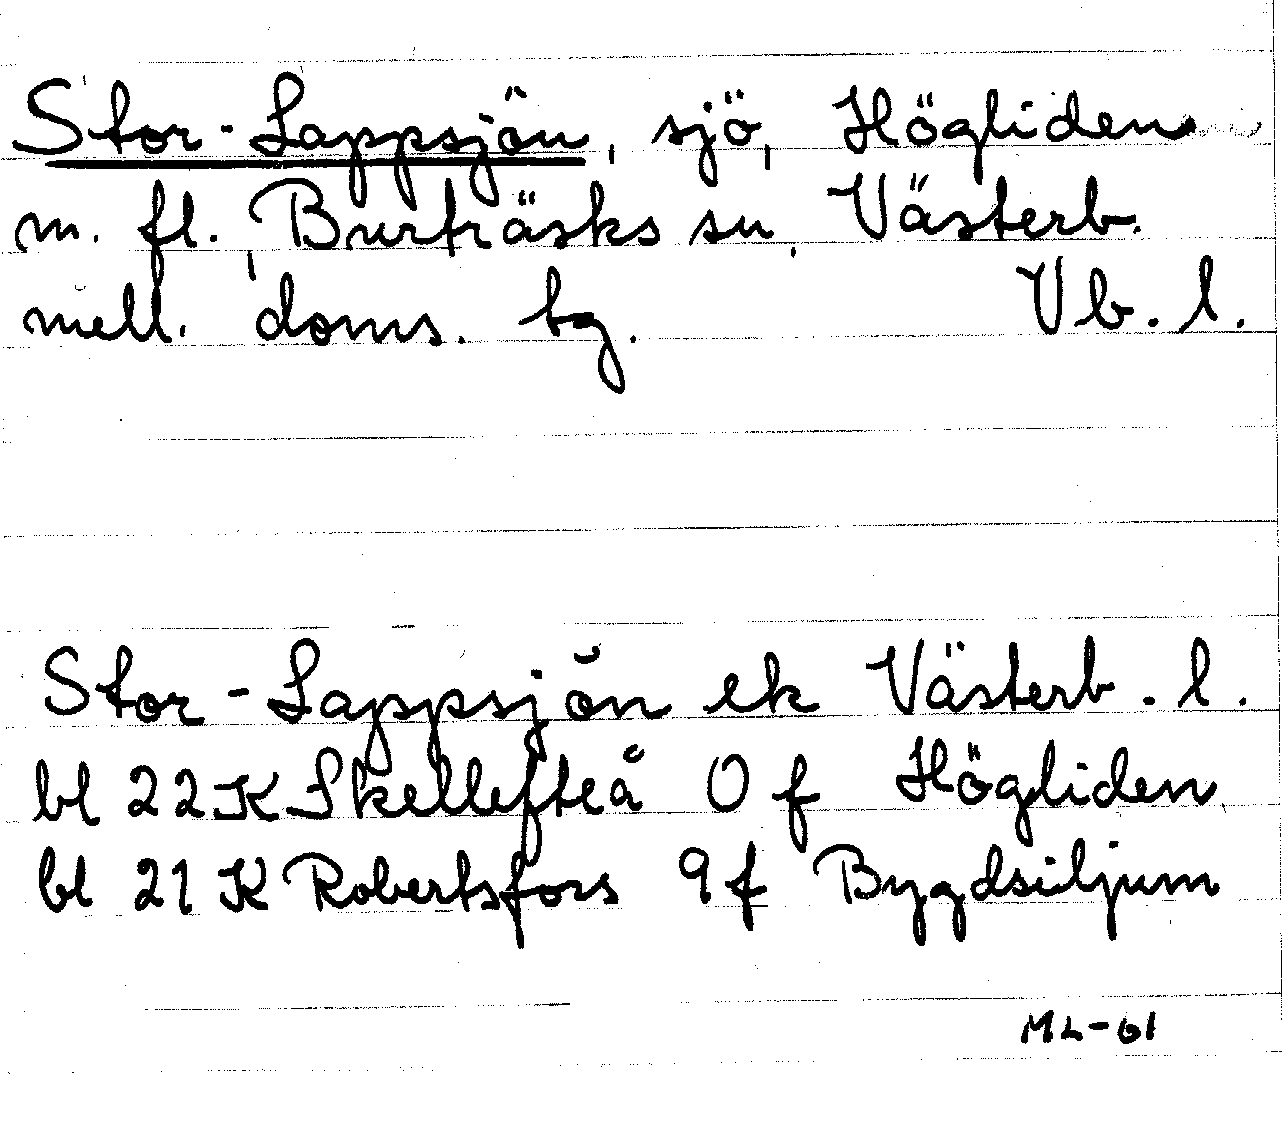 Stor-Lappsjön, sjö, Högliden
m. fl., Burträsks sn, Västerb.
mell. doms. bg. Vb. l.
Stor-Lappsjön ek Västerb. l.
bl 22 K Skellefteå 0 f Högliden
bl 21 K Robertsfors 9 f Bygdsiljum
ML-61